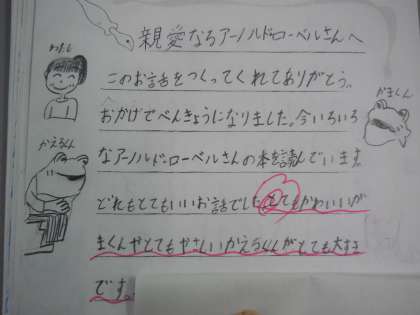 親愛なるアーノルド・ローベルさんへ
わたし
このお話をつくってくれてありがとう。
おかげでべんきょうになりました。今いろいろ
がまくん
なアーノルド・ローベルさんの本を読んでいます。
かえるくん
どれもとてもいいお話でした。とてもかわいいが
まくんやとてもやさしいかえるくんがとても大すき
です。